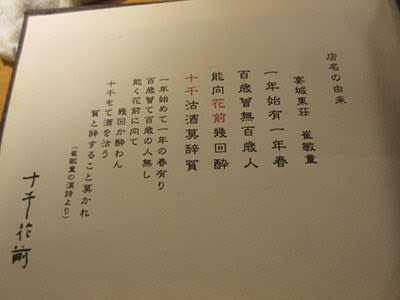 店名の由来
宴城東荘　崔敏童
一年始有一年春
百歳曾無百歳人
能向花前幾回醉
十千沽酒莫辞貧
一年始めて一年の春有り
百歳曾て百歳の人無し
能く花前に向て
幾回か酔わん
十千もて酒を沽う
貧と辞すること莫かれ
（崔敏童の漢詩より）
十千花前